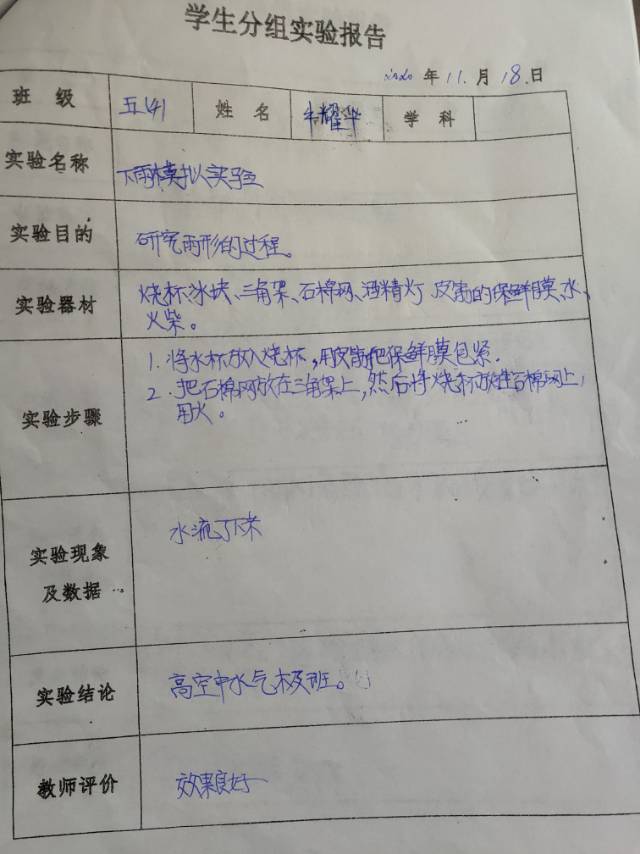 学生分组实验报告
2020 年 11. 月 18. 日
班 级 五(4) 姓 名 牛耀华 学 科
实验名称 下雨模拟实验
实验目的 研究雨形的过程。
实验器材 烧杯、冰块、三角架、石棉网、酒精灯 皮筋的保鲜膜、水、
火柴。
实验步骤
1. 将水杯放入烧杯,用皮筋把保鲜膜包紧.
2. 把石棉网放在三角架上,然后将烧杯放在石棉网上,
用火。
实验现象
及数据
水流了下来
实验结论 高空中水气极班。
教师评价 效果良好